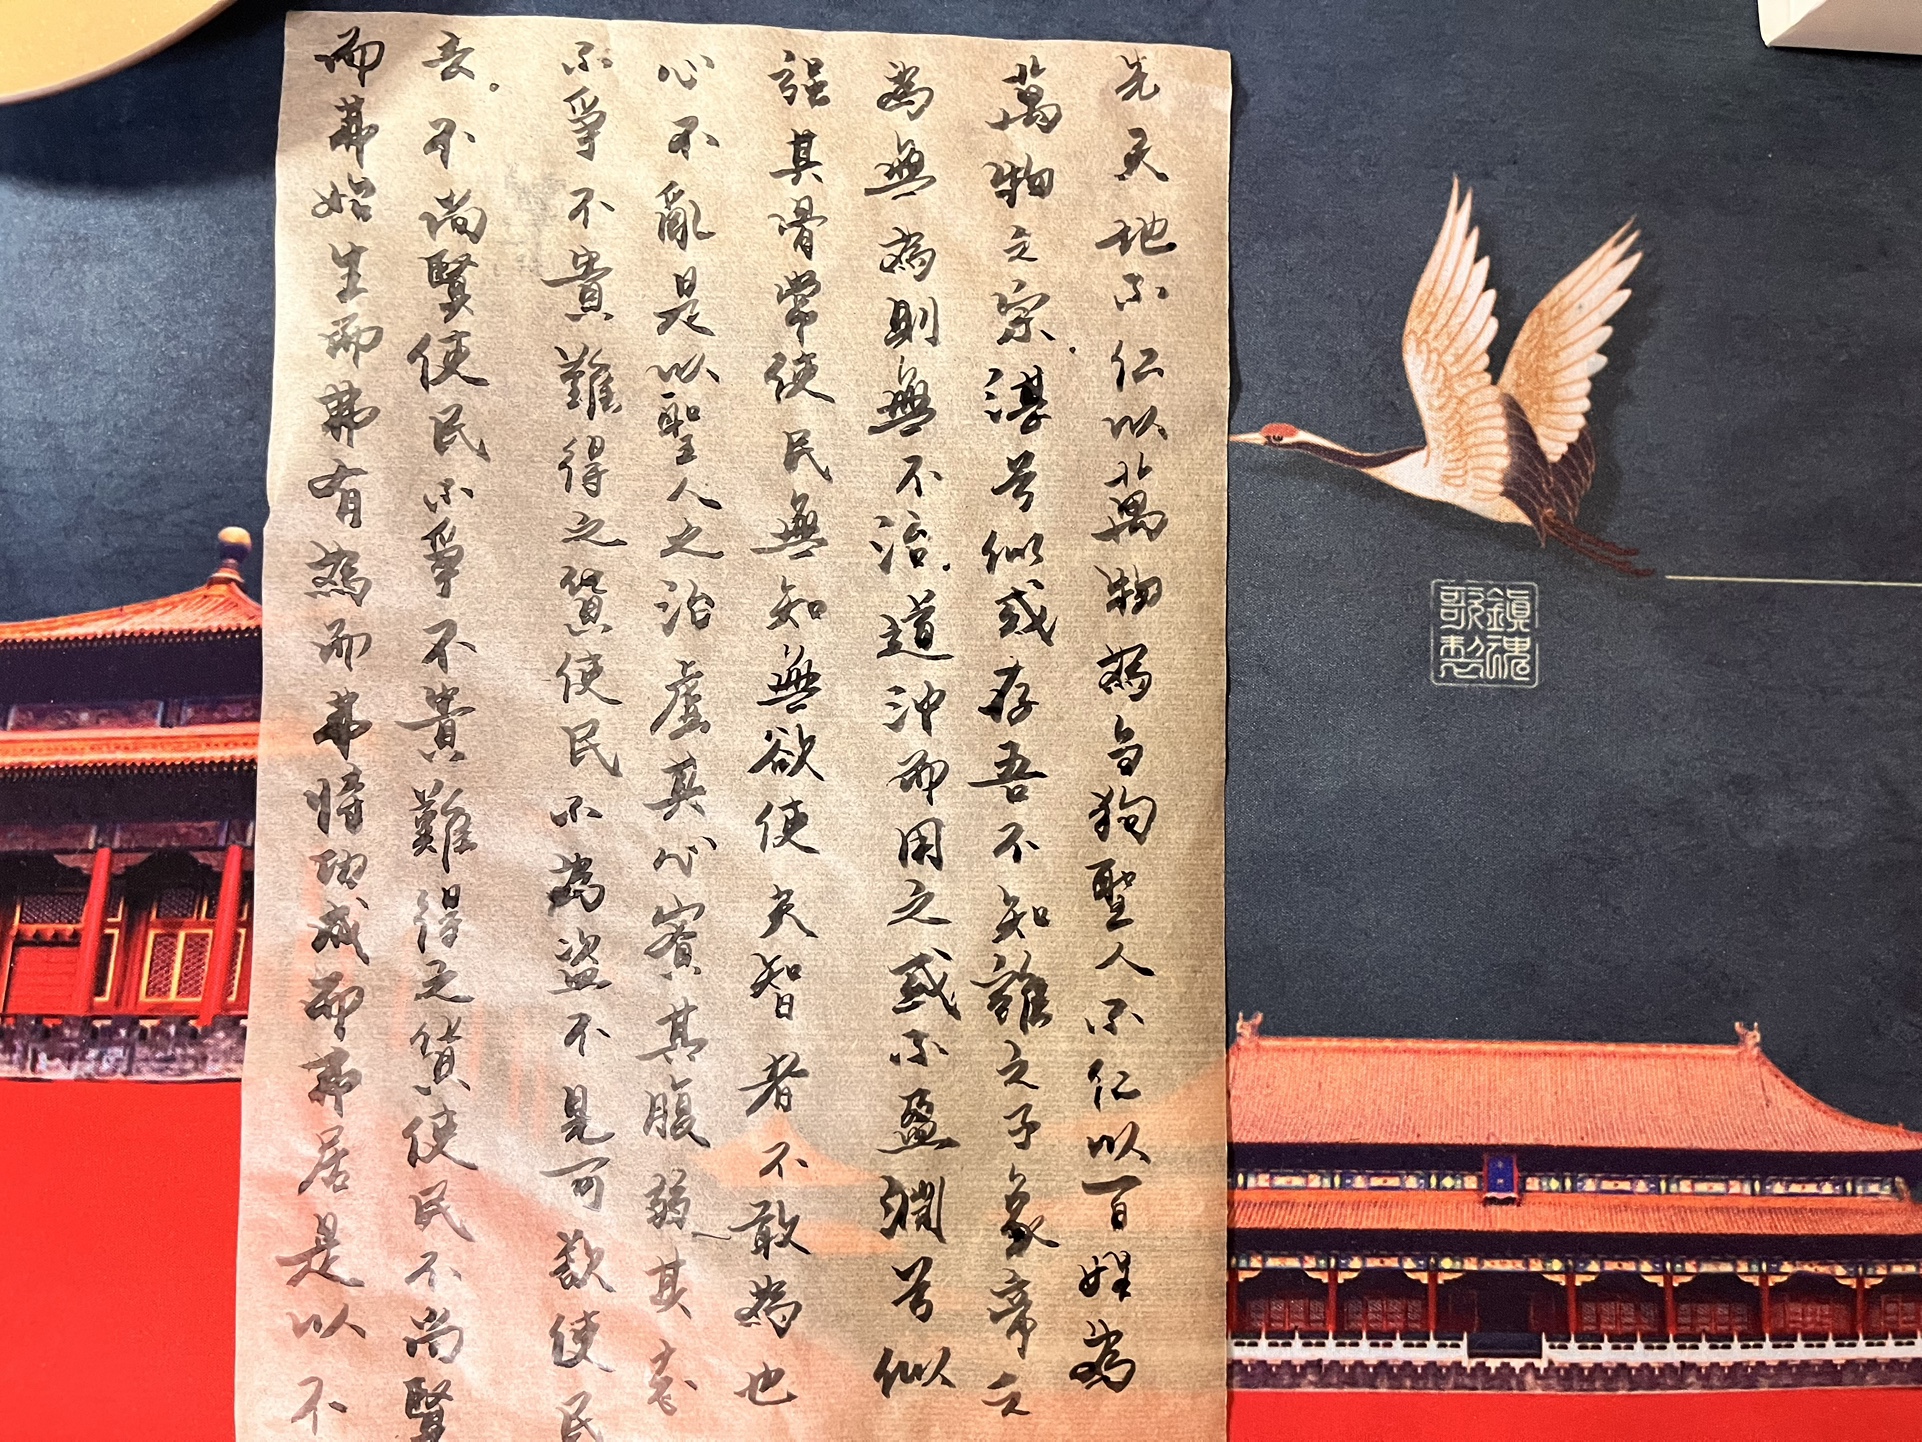 先天地不仁以萬物為刍狗聖人不仁以百姓為
萬物之宗.湛兮似或存吾不知誰之子象帝之
為無為則無不治.道沖而用之或不盈淵兮似
强其骨常使民無知無欲使夫智者不敢為也
心不亂是以聖人之治虛其心實其腹弱其志
不爭不貴難得之貨使民不為盜不見可欲使民
去。不尚賢使民不爭不貴難得之貨使民不尚賢
而弗始生而弗有為而弗恃功成而弗居是以不
鎮魂
歌製